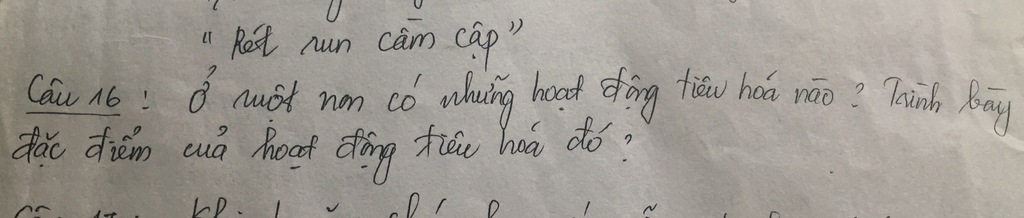 " Rét run cầm cập"
Câu 16 : Ở ruột non có những hoạt động tiêu hoá nào ? Trình bày
đặc điểm của hoạt động tiêu hoá đó ?